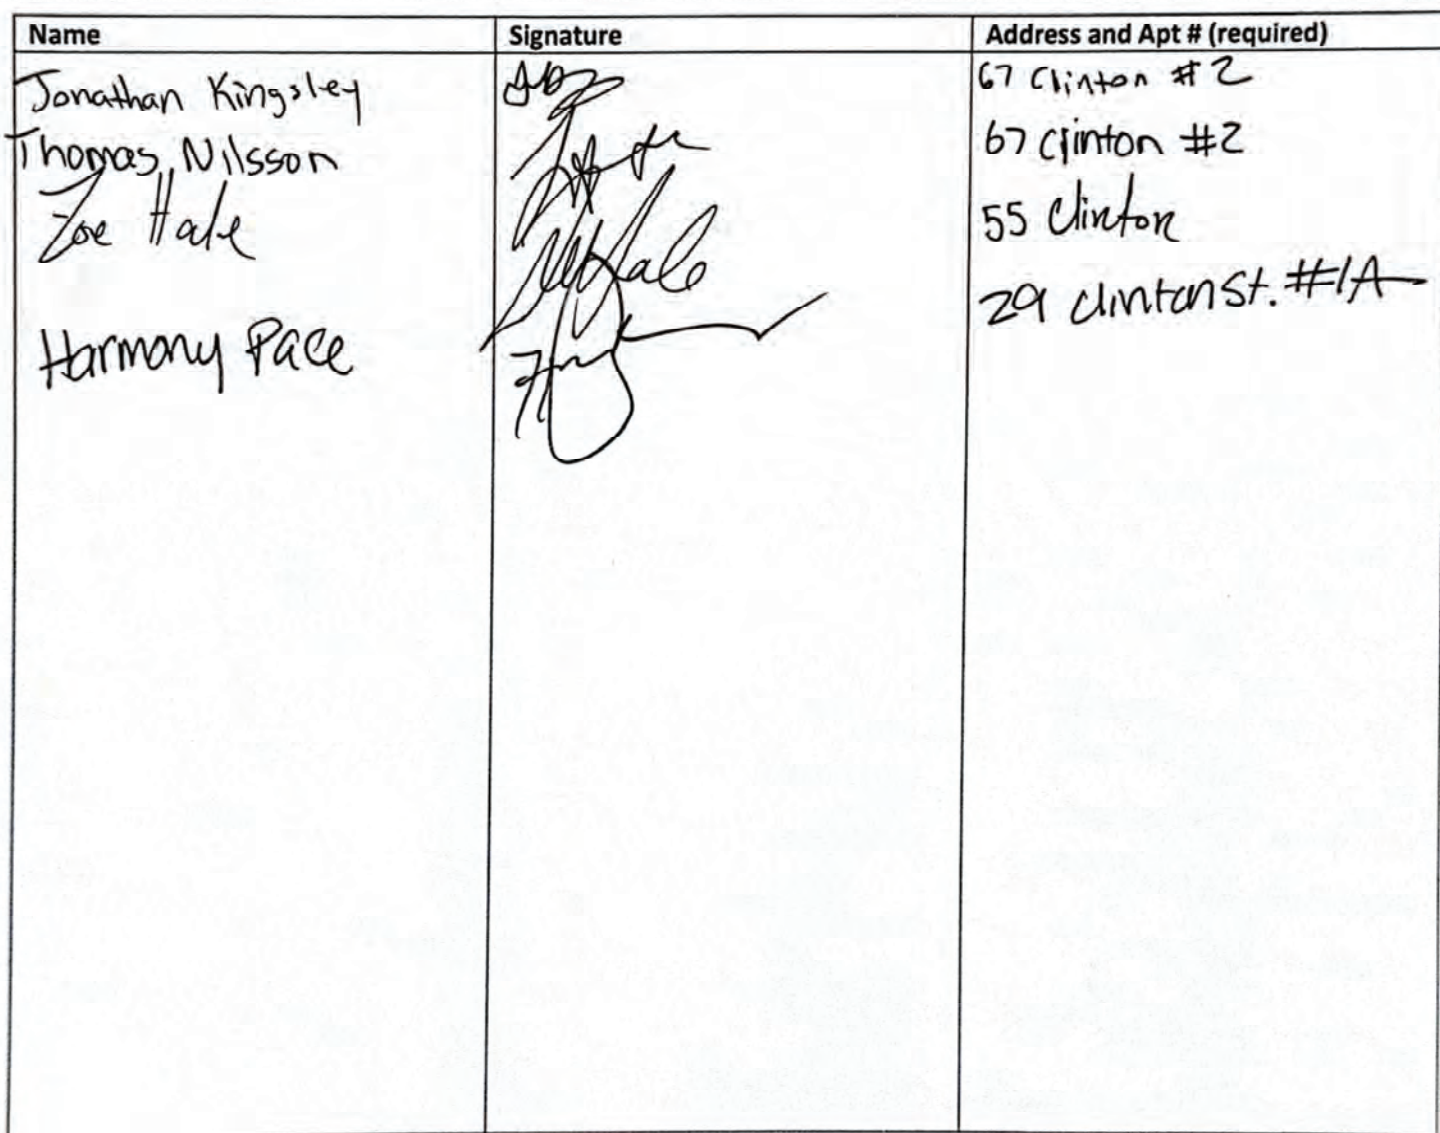 Name Signature Address and Apt # (required)
Jonathan Kingsley 67 Clinton #2
Thomas Nilsson 67 Clinton #2
Zoe Hale Hale 55 Clinton
Harmony Pace 29 Clinton St. #1A